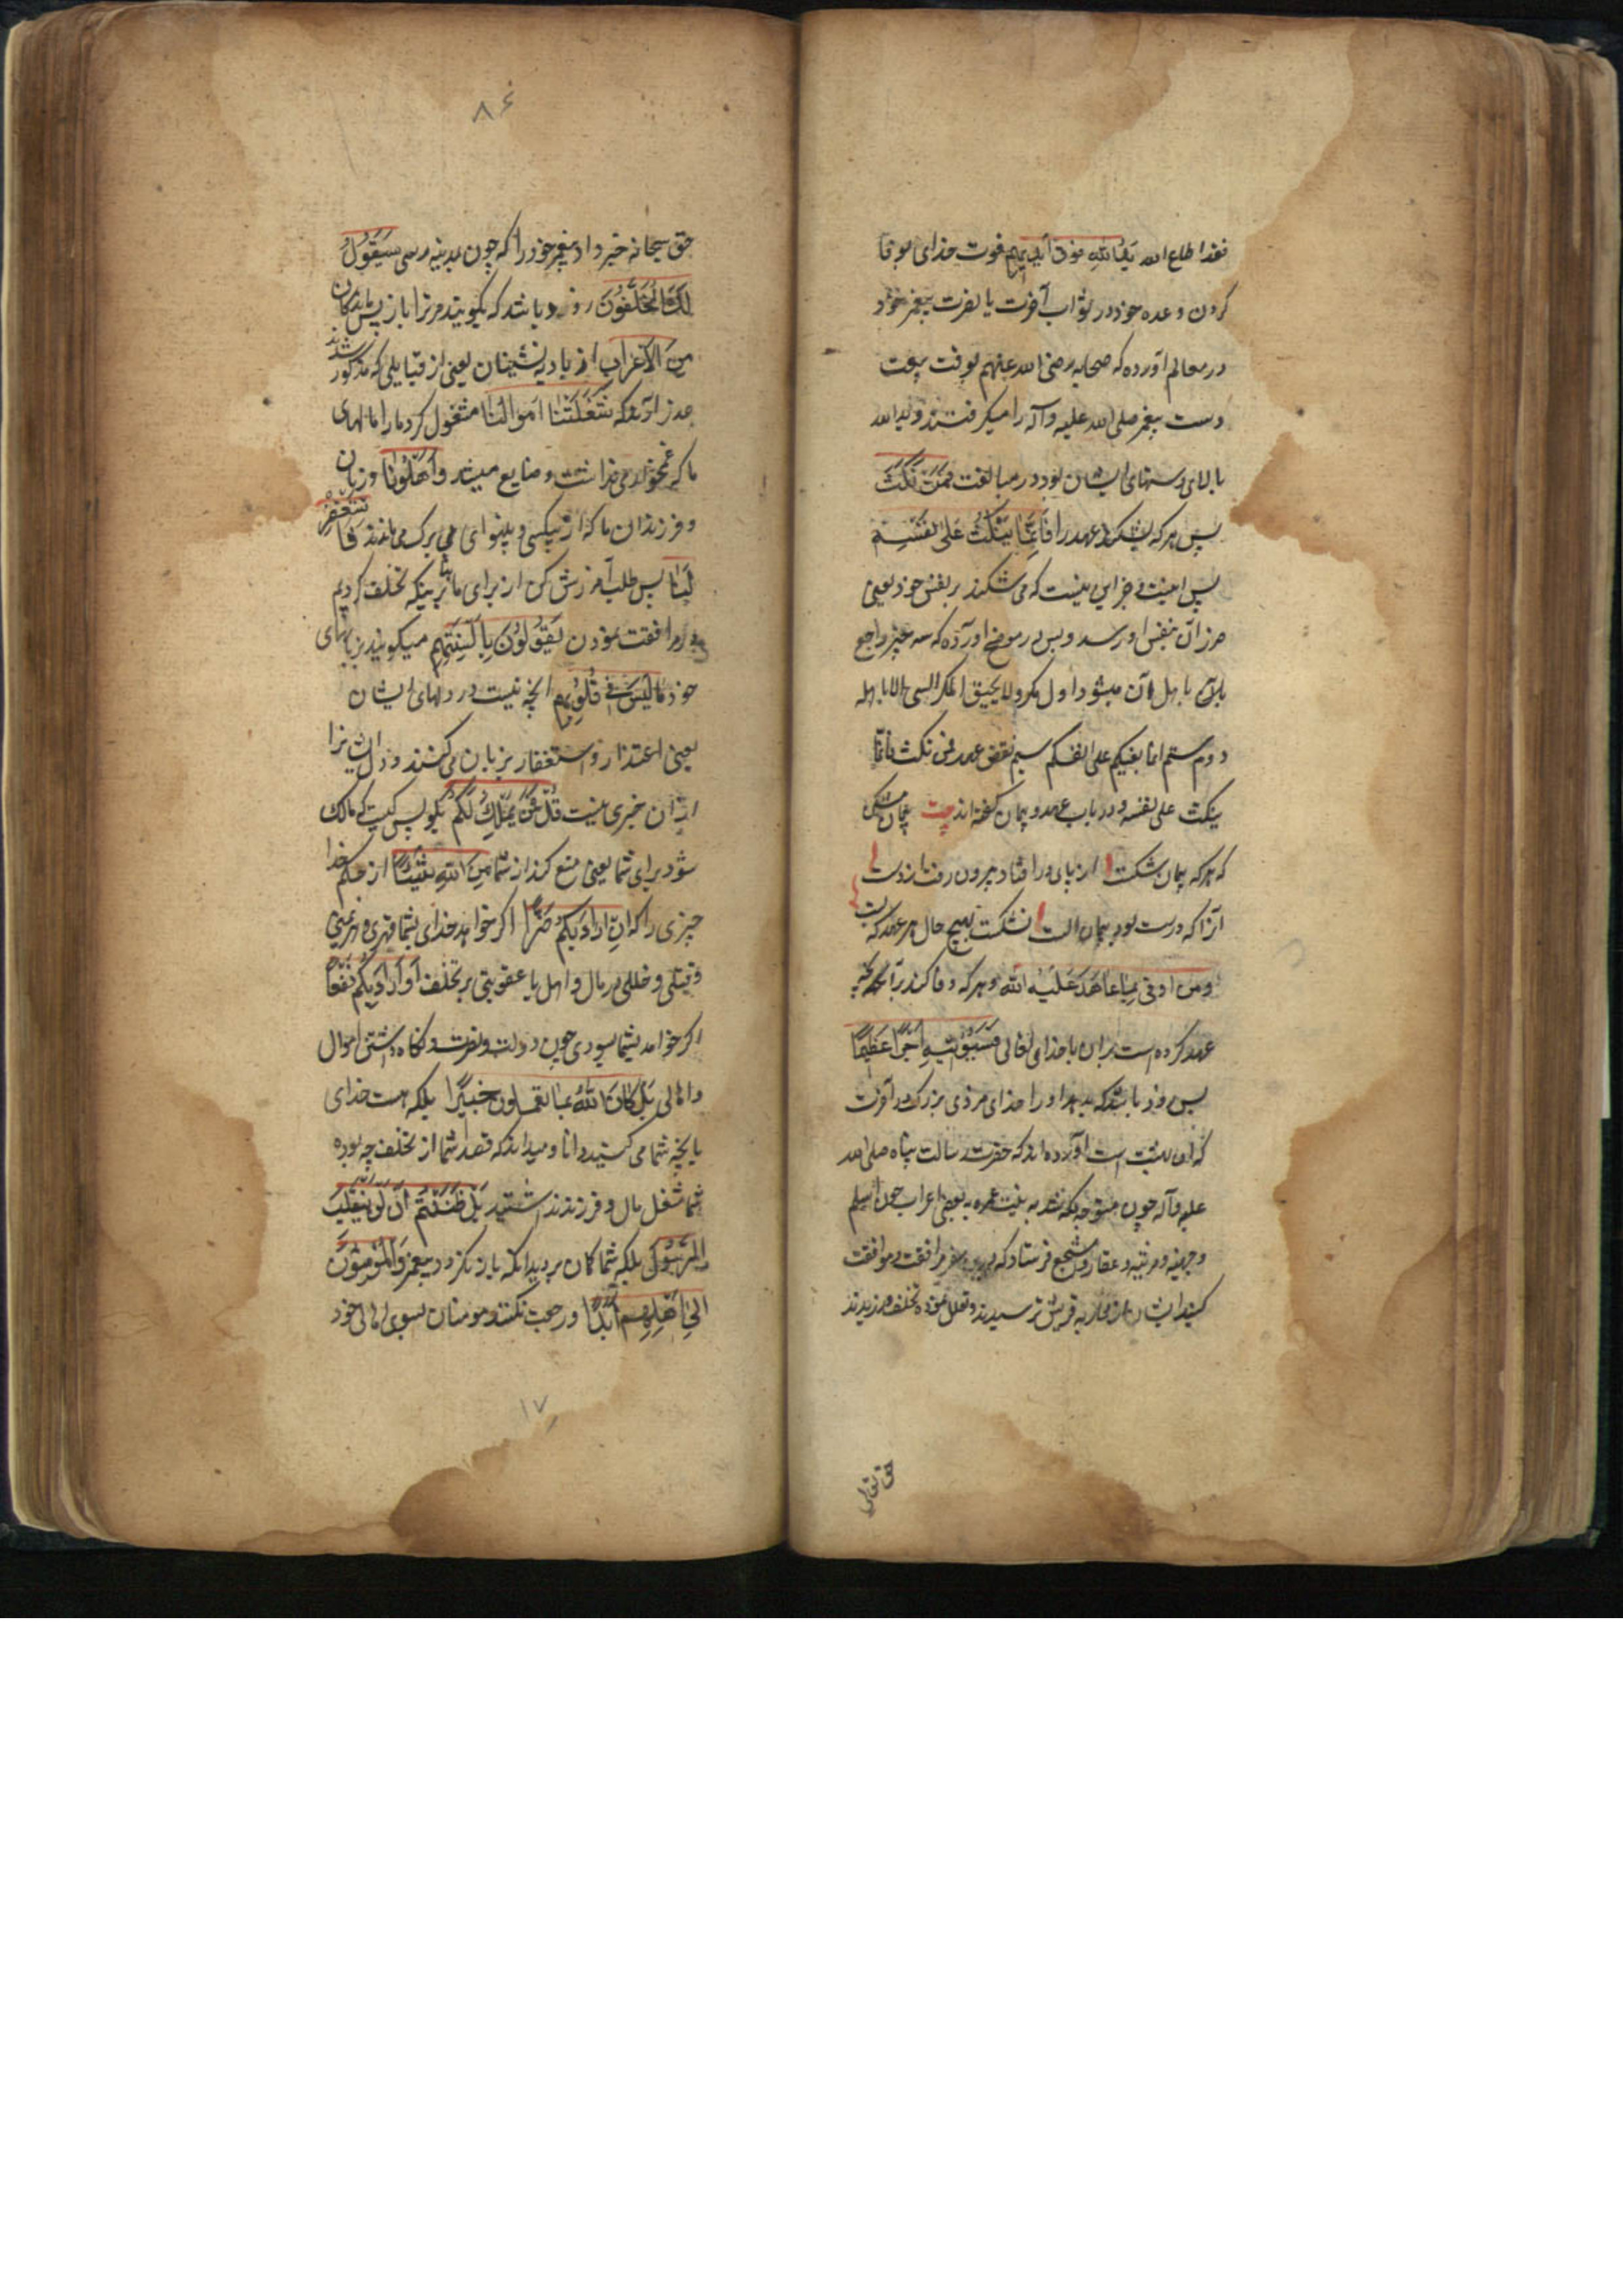 فقد اطاع الله یَدُ اللهِ فوق اَیدِیهِم قوت خدای بوفا
کردن وعده خود در ثواب آخرت یا نصرت پیغمبر خود
در معالم آورده که صحابه رضی الله عنهم بوقت بیعت
دست پیغمبر صلی الله علیه وآله را میگرفتند و ید الله
بالای دستهای ایشان بود در مبالغت فَمَن نَکَثَ
پس هر که بشکند عهد را فَاِنَّمَا یَنکُثُ عَلی نَفسِه
پس اینست و جز این نیست که می شکند بر نفس خود یعنی
ضرر آن بنفس او رسد و بس در موضح آورده که سه چیز راجع
باهل آن میشود اول مکر ولا یحیق المکر السیی الا باهله
دوم ستم انما بغیکم علی انفسکم سیم نقض عهد فمن نکث فانما
ینکث علی نفسه و در باب عهد و پیمان گفته اند بیت پیمان مشکن
که هر که پیمان بشکست از پای درافتاد و بیرون رفت از دست
آنرا که درست بود پیمان الست نشکست بهیچ حال هر عهد که بست
ومن اوفی بِمَا عَاهَدَ عَلَیهُ الله و هر که وفا کند بر آنچه
عهد کرده است بران با خدای تعالی فَسَیُؤتیهِ اَجراً عَظیماً
پس زود باشد که بدهد او را خدای مزدی بزرگ در آخرت
که آن بهشت است آورده اند که حضرت رسالت پناه صلی الله
علیه وآله چون متوجه مکه شد به نیت عمره به بعضی اعراب چون اسلم
وجهینه و مزینه و غفار و اشجع فرستاد که درین سفر مرافقت و موافقت
کنید ایشان از محاربه قریش ترسیدند و تعلل نموده تخلف ورزیدند
حق تعالی
۸۶
حق سبحانه خبر داد پیغمبر خود را که چون بمدینه رسی سَیَقُولُ
لَکَ المُخَلَّفُونَ زود باشد که بگویند مر ترا باز پس ماندگان
مِنَ الاَعرَابِ از بادیه نشینان یعنی از قبایلی که مذکور شدند
عذر آرند که شَغَلَتنَا اَموَالُنَا مشغول کرد ما را مالهای
ما که غمخواری نداشت و ضایع میشد وَاَهلُونَا و زنان
و فرزندان ما که از بیکسی و بینوایی بی برگ می ماندند فَاستَغفِر
لَنَا پس طلب آمرزش کن از برای ما بر اینکه تخلف کردیم
در مرافقت نمودن یَقُولُونَ بِاَلسِنَتِهِم میگویند بزبانهای
خود مَا لَیسَ فِی قُلُوبِهِم آنچه نیست در دلهای ایشان
یعنی اعتذار و استغفار بزبان می کنند و دل ایشانرا
از آن خبری نیست قُل فَمَن یَملِکُ لَکُم بگو پس کیست که مالک
شود برای شما یعنی منع کند از شما مِنَ اللهِ شَیئاً از حکم خدا
چیزی را که اِن اَرَادَ بِکُم ضَرّاً اگر خواهد خدای بشما قهری و هزیمتی
و قتلی و خللی در مال و اهل یا عقوبتی بر تخلف اَو اَرَادَ بِکُم نَفعاً
اگر خواهد بشما سودی چون دولت و نصرت و نگاه داشتن اموال
و اهالی بَل کَانَ اللهُ بِمَا تعملون خَبِیراً بلکه هست خدای
بآنچه شما می کنید دانا و میداند که قصد شما از تخلف چه بوده
شما شغل مال و فرزند نداشتید بَل ظَنَنتُم اَن لَن یَنقَلِبَ
الرَّسُولُ بلکه شما گمان بردید آنکه باز نگردد پیغمبر وَالمُؤمِنُونَ
اِلی اَهلِیهِم اَبَداً و رجعت نکنند مومنان بسوی اهالی خود
۱۷